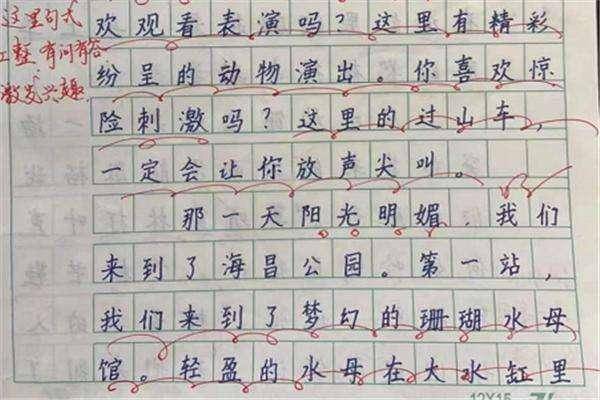 这里句式
工整,有问有答
激发兴趣.
欢观看表演吗?这里有精彩
纷呈的动物演出。你喜欢惊
险刺激吗?这里的过山车,
一定会让你放声尖叫。
那一天阳光明媚,我们
来到了海昌公园。第一站,
我们来到了梦幻的珊瑚水母
馆。轻盈的水母在大水缸里
12X15